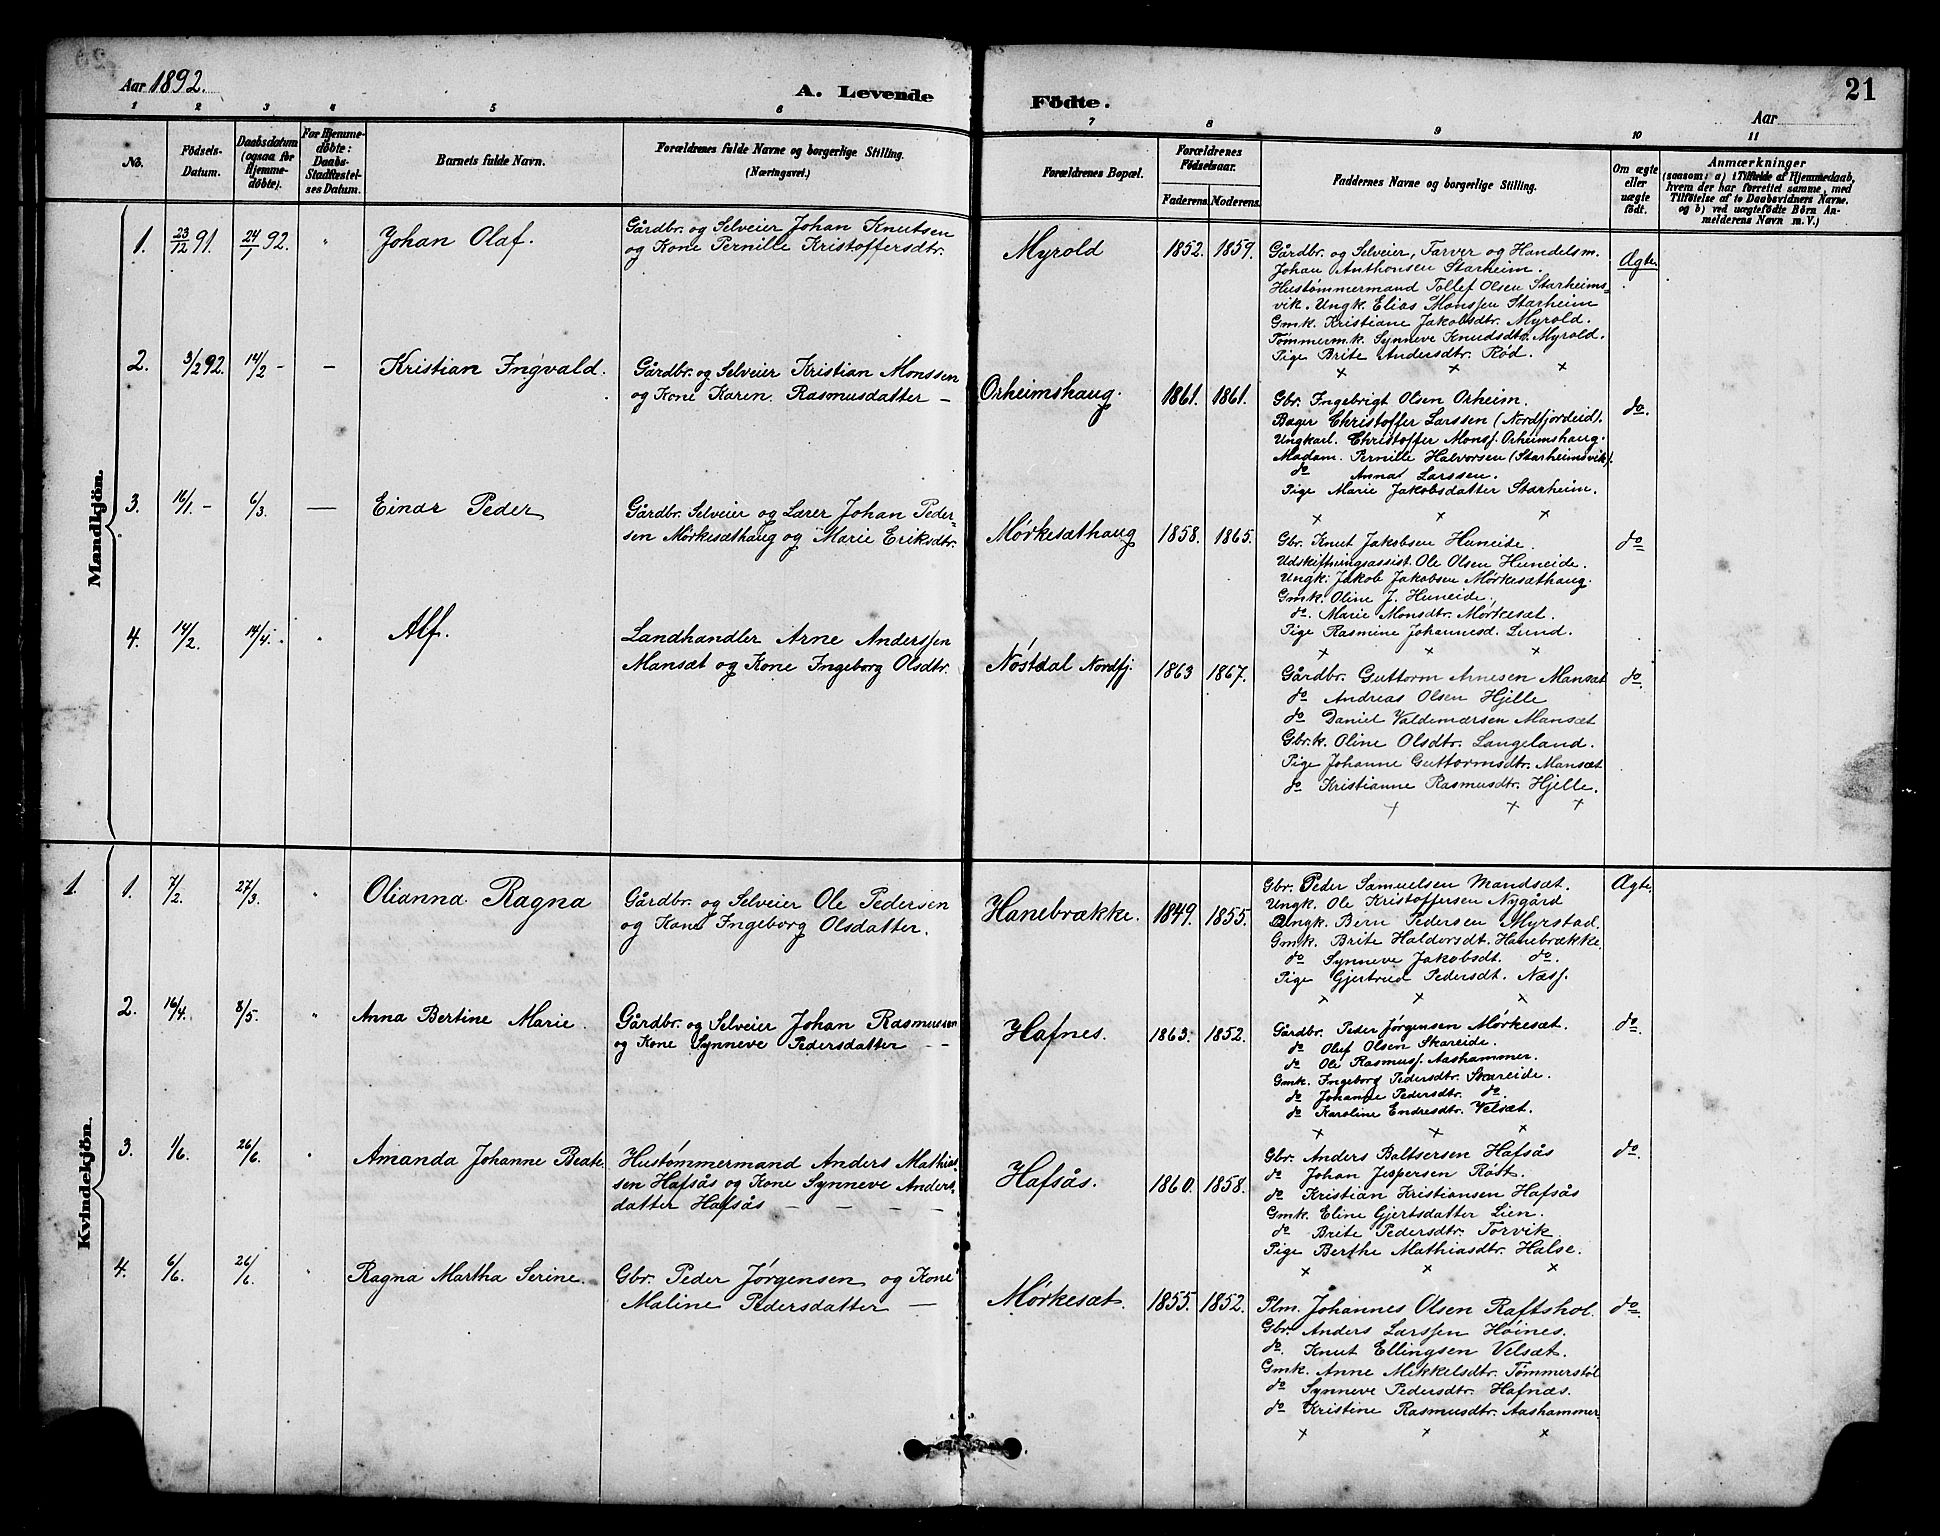 Aar 1892.
A. Levende Födte.
21
Aar
1 2 3 4 5 6 7 8 9 10 11
No.
Födsels-
Datum.
Daabsdatum
(ogsaa for
Hjemme-
döbte).
For Hjemme-
döbte:
Daabs-
Stadfæstel-
ses Datum.
Barnets fulde Navn.
Forældrenes fulde Navne og borgerlige Stilling.
(Næringsvei.)
Forældrenes Bopæl.
Forældrenes
Födselsaar.
Faderens. Moderens.
Faddernes Navne og borgerlige Stilling.
Om ægte
eller
uægte
født.
Anmærkninger
(saasom: a) i Tilfælde af Hjemmedaab,
hvem der har forrettet samme, med
Tilföielse af to Daabsvidners Navne.
og b) ved uægtefödte Börn An-
melderens Navn m. V.)
Mandkjön.
1. 23/12 91. 24/1 92. " Johan Olaf.
Gårdbr. og Selveier Johan Knutsen
og Kone Pernille Kristoffersdtr.
Myrold 1852. 1859.
Gårdbr. og Selveier, Farver og Handelsm.
Johan Anthonsen Starheim.
Hustømmermand Tollef Olsen Starheims-
vik. Ungk. Elias Monssen Starheim
Gmk. Kristiane Jakobsdtr. Myrold.
Tømmermk. Synneve Knudsdtr. Myrold.
Pige Brite Andersdtr. Rød.
x x x
Ægte.
2. 3/2 92. 14/2 - - Kristian Ingvald.
Gårdbr. og Selveier Kristian Monssen
og Kone Karen Rasmusdatter -
Orheimshaug. 1861. 1861.
Gbr. Ingebrigt Olsen Orheim.
Bager Christoffer Larssen (Nordfjordeid).
Ungkarl. Christoffer Monss. Orheimshaug.
Madam. Pernille Halvorsen (Starheimsvik).
do Anna Larssen.
Pige Marie Jakobsdatter Starheim.
x x x
do.
3. 16/1. - 6/3. - Einar Peder
Gårdbr. Selveier og Lærer Johan Peder-
sen Mørkesæthaug og Marie Eriksdtr.
Mørkesæthaug 1858. 1865.
Gbr. Knut Jakobsen Huneide.
Udskiftningsassist. Ole Olsen Huneide.
Ungk. Jakob Jakobsen Mørkesæthaug.
Gmk. Oline J. Huneide,
do. Marie Monsdtr. Mørkesæt.
Pige Rasmine Johannesd. Lund.
x x x
do
4. 14/2. 14/4. " Alf.
Landhandler Arne Anderssen
Mansæt og Kone Ingeborg Olsdtr.
Nøstdal Nordfj. 1863 1867.
Gårdbr. Guttorm Arnesen Mansæt
do Andreas Olsen Hjelle
do Daniel Valdemarsen Mansæt
Gbr.k. Oline Olsdtr. Langeland.
Pige Johanne Guttormsdtr. Mansæt
do Kristianne Rasmusdtr. Hjelle.
x x x
do.
Kvindekjön.
1. 1. 7/2. 27/3. " Olianna Ragna
Gårdbr. og Selveier Ole Pedersen
og Kone Ingeborg Olsdatter.
Hanebrække. 1849. 1855.
Gbr. Peder Samuelsen Mandsæt.
Ungk. Ole Kristoffersen Nygård
Ungk. Bern Pedersen Myrstad.
Gmk. Brite Haldorsdt. Hanebrække.
do Synneve Jakobsdt. do.
Pige Gjertrud Pedersdt. Næss.
x x x
Ægte.
2. 16/4. 8/5. " Anna Bertine Marie.
Gårdbr. og Selveier Johan Rasmusen
og Kone Synneve Pedersdatter - -
Hafnes. 1863. 1852.
Gårdbr. Peder Jørgensen Mørkesæt.
do Oluf Olsen Skareide.
do Ole Rasmuss. Aashammer.
Gmk. Ingeborg Pedersdtr. Skareide.
do Johanne Pedersdtr. do.
do Karoline Endresdtr. Velsæt.
x x x
do.
3. 1/6. 26/6. " Amanda Johanne Beate.
Hustømmermand Anders Mathias-
sen Hafsås og Kone Synneve Anders-
datter Hafsås - - - -
Hafsås. 1860. 1858.
Gbr. Anders Baltsersen Hafsås
do Johan Jespersen Röst.
do Kristian Kristiansen Hafsås
Gmk. Eline Gjertsdatter Lien.
do Brite Pedersdtr. Torvik
Pige Berthe Mathiasdtr. Halse.
x x x
do.
4. 6/6. 26/6. " Ragna Martha Serine.
Gbr. Peder Jørgensen og Kone
Maline Pedersdatter -
Mørkesæt. 1855. 1852.
Plm. Johannes Olsen Raftshol.
Gbr. Anders Larssen Høines.
do. Knut Ellingsen Velsæt.
Gmk. Anne Mikkelsdtr. Tømmerstøl
do Synneve Pedersdtr. Hafnæs.
do Kristine Rasmusdtr. Aashammer
x x x
do.